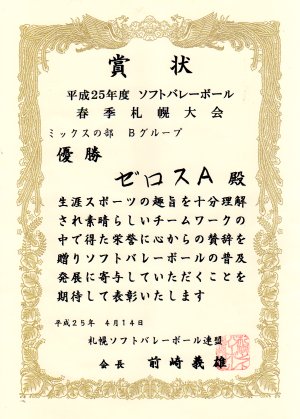 賞状
平成25年度 ソフトバレーボール
春季札幌大会
ミックスの部 Bグループ
優勝
ゼロスA 殿
生涯スポーツの趣旨を十分理解
され素晴らしいチームワークの
中で得た栄誉に心からの賛辞を
贈りソフトバレーボールの普及
発展に寄与していただくことを
期待して表彰いたします
平成25年 4月14日
札幌ソフトバレーボール連盟
会長 前崎義雄